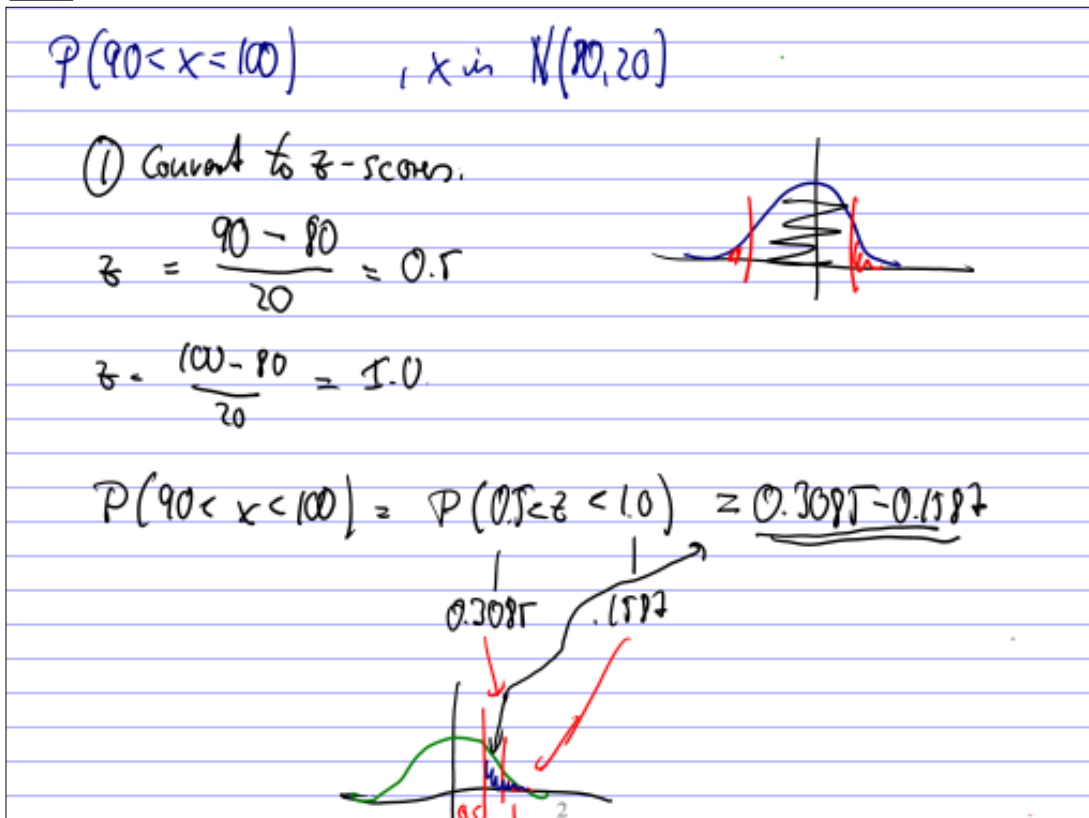 P(90< x = 100) , x in N(80,20)
① Convert to z-scores.
z = 90 - 80 / 20 = 0.5
z = 100 - 80 / 20 = 1.0
P(90 < x < 100) = P(0.5<z < 1.0) = 0.3085-0.1587
0.3085 .1587
0.5 1 2